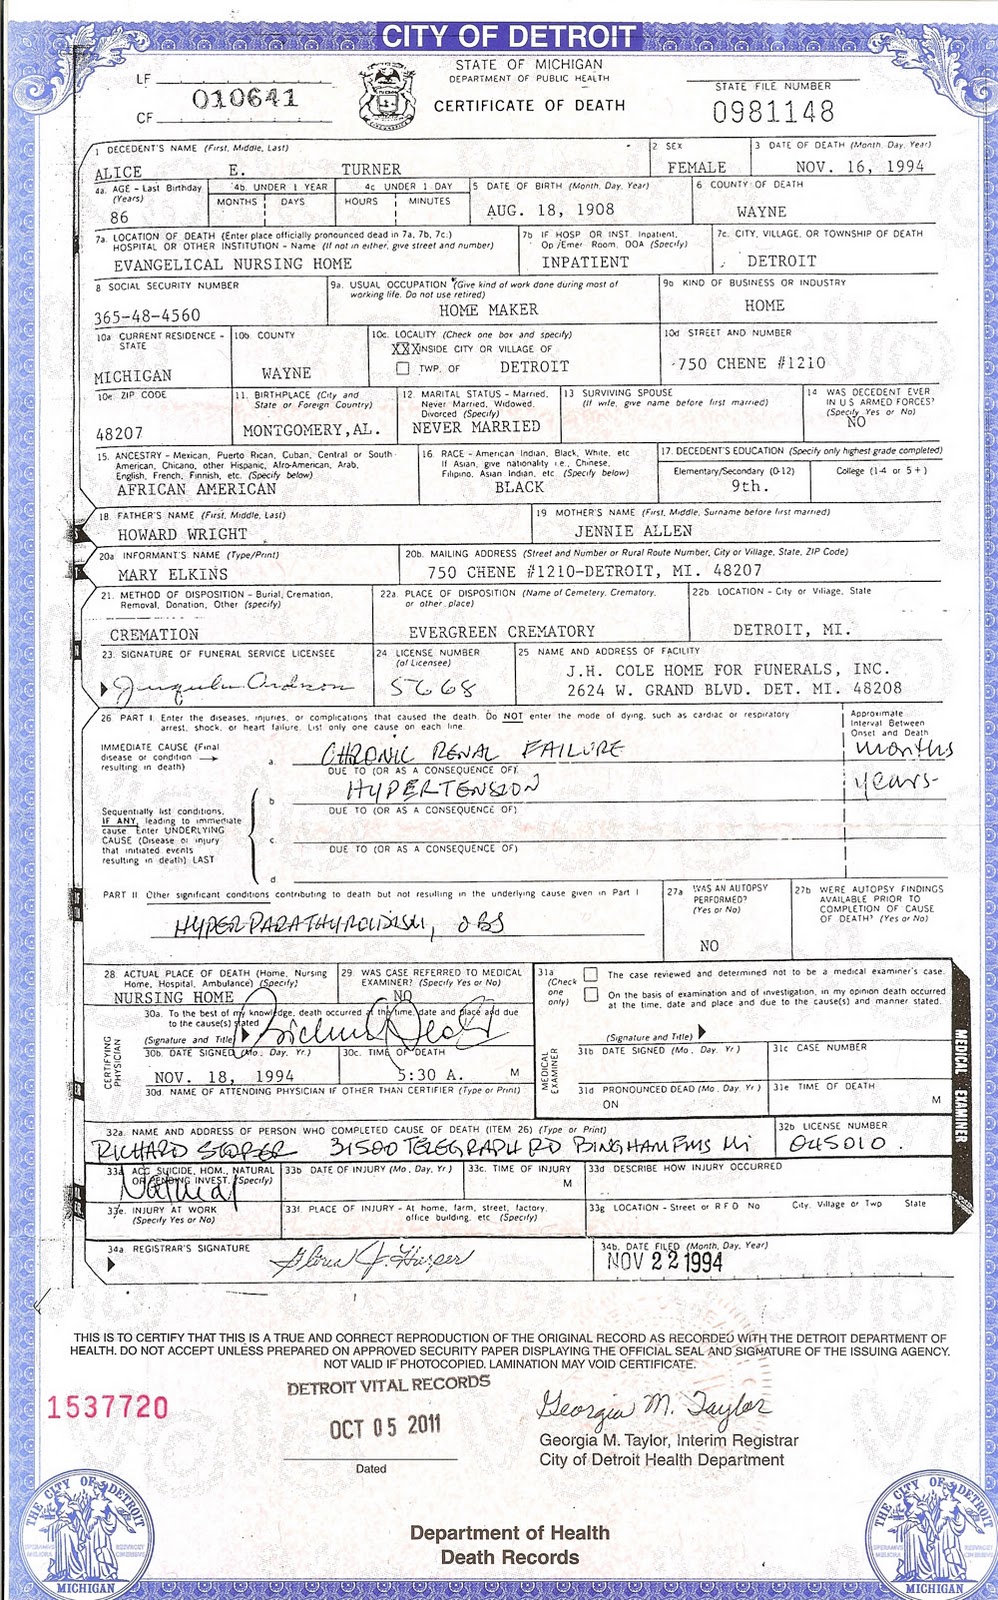 CITY OF DETROIT
STATE OF MICHIGAN
DEPARTMENT OF PUBLIC HEALTH
CERTIFICATE OF DEATH
LF
010641
CF
STATE FILE NUMBER
0981148
1 DECEDENT'S NAME (First, Middle, Last)
ALICE E. TURNER
2 SEX
FEMALE
3 DATE OF DEATH (Month, Day, Year)
NOV. 16, 1994
4a. AGE - Last Birthday (Years)
86
4b UNDER 1 YEAR
MONTHS DAYS
4c UNDER 1 DAY
HOURS MINUTES
5 DATE OF BIRTH (Month, Day, Year)
AUG. 18, 1908
6 COUNTY OF DEATH
WAYNE
7a. LOCATION OF DEATH (Enter place officially pronounced dead in 7a, 7b, 7c.)
HOSPITAL OR OTHER INSTITUTION - Name (If not in either, give street and number)
EVANGELICAL NURSING HOME
7b IF HOSP OR INST. Inpatient,
Op/Emer Room, DOA (Specify)
INPATIENT
7c. CITY, VILLAGE, OR TOWNSHIP OF DEATH
DETROIT
8 SOCIAL SECURITY NUMBER
365-48-4560
9a. USUAL OCCUPATION (Give kind of work done during most of
working life. Do not use retired)
HOME MAKER
9b KIND OF BUSINESS OR INDUSTRY
HOME
10a CURRENT RESIDENCE -
STATE
MICHIGAN
10b COUNTY
WAYNE
10c. LOCALITY (Check one box and specify)
XXXINSIDE CITY OR VILLAGE OF
TWP. OF DETROIT
10d STREET AND NUMBER
750 CHENE #1210
10e. ZIP CODE
48207
11. BIRTHPLACE (City and
State or Foreign Country)
MONTGOMERY,AL.
12. MARITAL STATUS - Married,
Never Married, Widowed,
Divorced (Specify)
NEVER MARRIED
13 SURVIVING SPOUSE
(If wife, give name before first married)
14 WAS DECEDENT EVER
IN U.S ARMED FORCES?
(Specify Yes or No)
NO
15. ANCESTRY - Mexican, Puerto Rican, Cuban, Central or South
American, Chicano, other Hispanic, Afro-American, Arab,
English, French, Finnish, etc. (Specify below)
AFRICAN AMERICAN
16. RACE - American Indian, Black, White, etc
If Asian, give nationality i.e., Chinese,
Filipino, Asian Indian, etc. (Specify below)
BLACK
17. DECEDENT'S EDUCATION (Specify only highest grade completed)
Elementary/Secondary (0-12)
College (1-4 or 5+)
9th.
18. FATHER'S NAME (First, Middle, Last)
HOWARD WRIGHT
19 MOTHER'S NAME (First, Middle, Surname before first married)
JENNIE ALLEN
20a INFORMANT'S NAME (Type/Print)
MARY ELKINS
20b. MAILING ADDRESS (Street and Number or Rural Route Number, City or Village, State, ZIP Code)
750 CHENE #1210-DETROIT, MI. 48207
21. METHOD OF DISPOSITION - Burial, Cremation,
Removal, Donation, Other (specify)
CREMATION
22a. PLACE OF DISPOSITION (Name of Cemetery, Crematory,
or other place)
EVERGREEN CREMATORY
22b LOCATION - City or Village, State
DETROIT, MI.
23. SIGNATURE OF FUNERAL SERVICE LICENSEE
24 LICENSE NUMBER
(of Licensee)
5668
25 NAME AND ADDRESS OF FACILITY
J.H. COLE HOME FOR FUNERALS, INC.
2624 W. GRAND BLVD. DET. MI. 48208
26 PART I. Enter the diseases, injuries, or complications that caused the death. Do NOT enter the mode of dying, such as cardiac or respiratory
arrest, shock, or heart failure. List only one cause on each line.
Approximate
Interval Between
Onset and Death
IMMEDIATE CAUSE (Final
disease or condition
resulting in death)
a. CHRONIC RENAL FAILURE
months
DUE TO (OR AS A CONSEQUENCE OF)
b HYPERTENSION
years-
DUE TO (OR AS A CONSEQUENCE OF)
Sequentially list conditions,
IF ANY, leading to immediate
cause. Enter UNDERLYING
CAUSE (Disease or injury
that initiated events
resulting in death) LAST
c.
DUE TO (OR AS A CONSEQUENCE OF)
d
PART II Other significant conditions contributing to death but not resulting in the underlying cause given in Part I
HYPERPARATHYROIDISM, OBS
27a WAS AN AUTOPSY
PERFORMED?
(Yes or No)
NO
27b WERE AUTOPSY FINDINGS
AVAILABLE PRIOR TO
COMPLETION OF CAUSE
OF DEATH? (Yes or No)
28. ACTUAL PLACE OF DEATH (Home, Nursing
Home, Hospital, Ambulance) (Specify)
NURSING HOME
29 WAS CASE REFERRED TO MEDICAL
EXAMINER? (Specify Yes or No)
NO
CERTIFYING PHYSICIAN
30a. To the best of my knowledge, death occurred at the time, date and place and due
to the cause(s) stated
(Signature and Title)
30b. DATE SIGNED (Mo., Day, Yr.)
NOV. 18, 1994
30c. TIME OF DEATH
5:30 A. M
30d. NAME OF ATTENDING PHYSICIAN IF OTHER THAN CERTIFIER (Type or Print)
MEDICAL EXAMINER
31a
(Check
one
only)
The case reviewed and determined not to be a medical examiner's case.
On the basis of examination and of investigation, in my opinion death occurred
at the time, date and place and due to the cause(s) and manner stated.
(Signature and Title)
31b DATE SIGNED (Mo, Day, Yr.)
31c CASE NUMBER
31d PRONOUNCED DEAD (Mo. Day, Yr)
ON
31e TIME OF DEATH
M
MEDICAL EXAMINER
32a. NAME AND ADDRESS OF PERSON WHO COMPLETED CAUSE OF DEATH (ITEM 26) (Type or Print)
RICHARD STOBER 31500 TELEGRAPH RD BINGHAM FMS MI
32b LICENSE NUMBER
045010.
33a ACC, SUICIDE, HOM., NATURAL
OR PENDING INVEST. (Specify)
Natural
33b DATE OF INJURY (Mo., Day, Yr.)
33c. TIME OF INJURY
M
33d DESCRIBE HOW INJURY OCCURRED
33e. INJURY AT WORK
(Specify Yes or No)
33f. PLACE OF INJURY - At home, farm, street, factory,
office building, etc (Specify)
33g LOCATION - Street or R F D No City, Village or Twp State
34a. REGISTRAR'S SIGNATURE
Gloria J. Harper
34b. DATE FILED (Month, Day, Year)
NOV 22 1994
THIS IS TO CERTIFY THAT THIS IS A TRUE AND CORRECT REPRODUCTION OF THE ORIGINAL RECORD AS RECORDED WITH THE DETROIT DEPARTMENT OF
HEALTH. DO NOT ACCEPT UNLESS PREPARED ON APPROVED SECURITY PAPER DISPLAYING THE OFFICIAL SEAL AND SIGNATURE OF THE ISSUING AGENCY.
NOT VALID IF PHOTOCOPIED. LAMINATION MAY VOID CERTIFICATE.
1537720
DETROIT VITAL RECORDS
OCT 05 2011
Dated
Georgia M. Taylor
Georgia M. Taylor, Interim Registrar
City of Detroit Health Department
Department of Health
Death Records
THE CITY OF DETROIT
MICHIGAN
THE CITY OF DETROIT
MICHIGAN